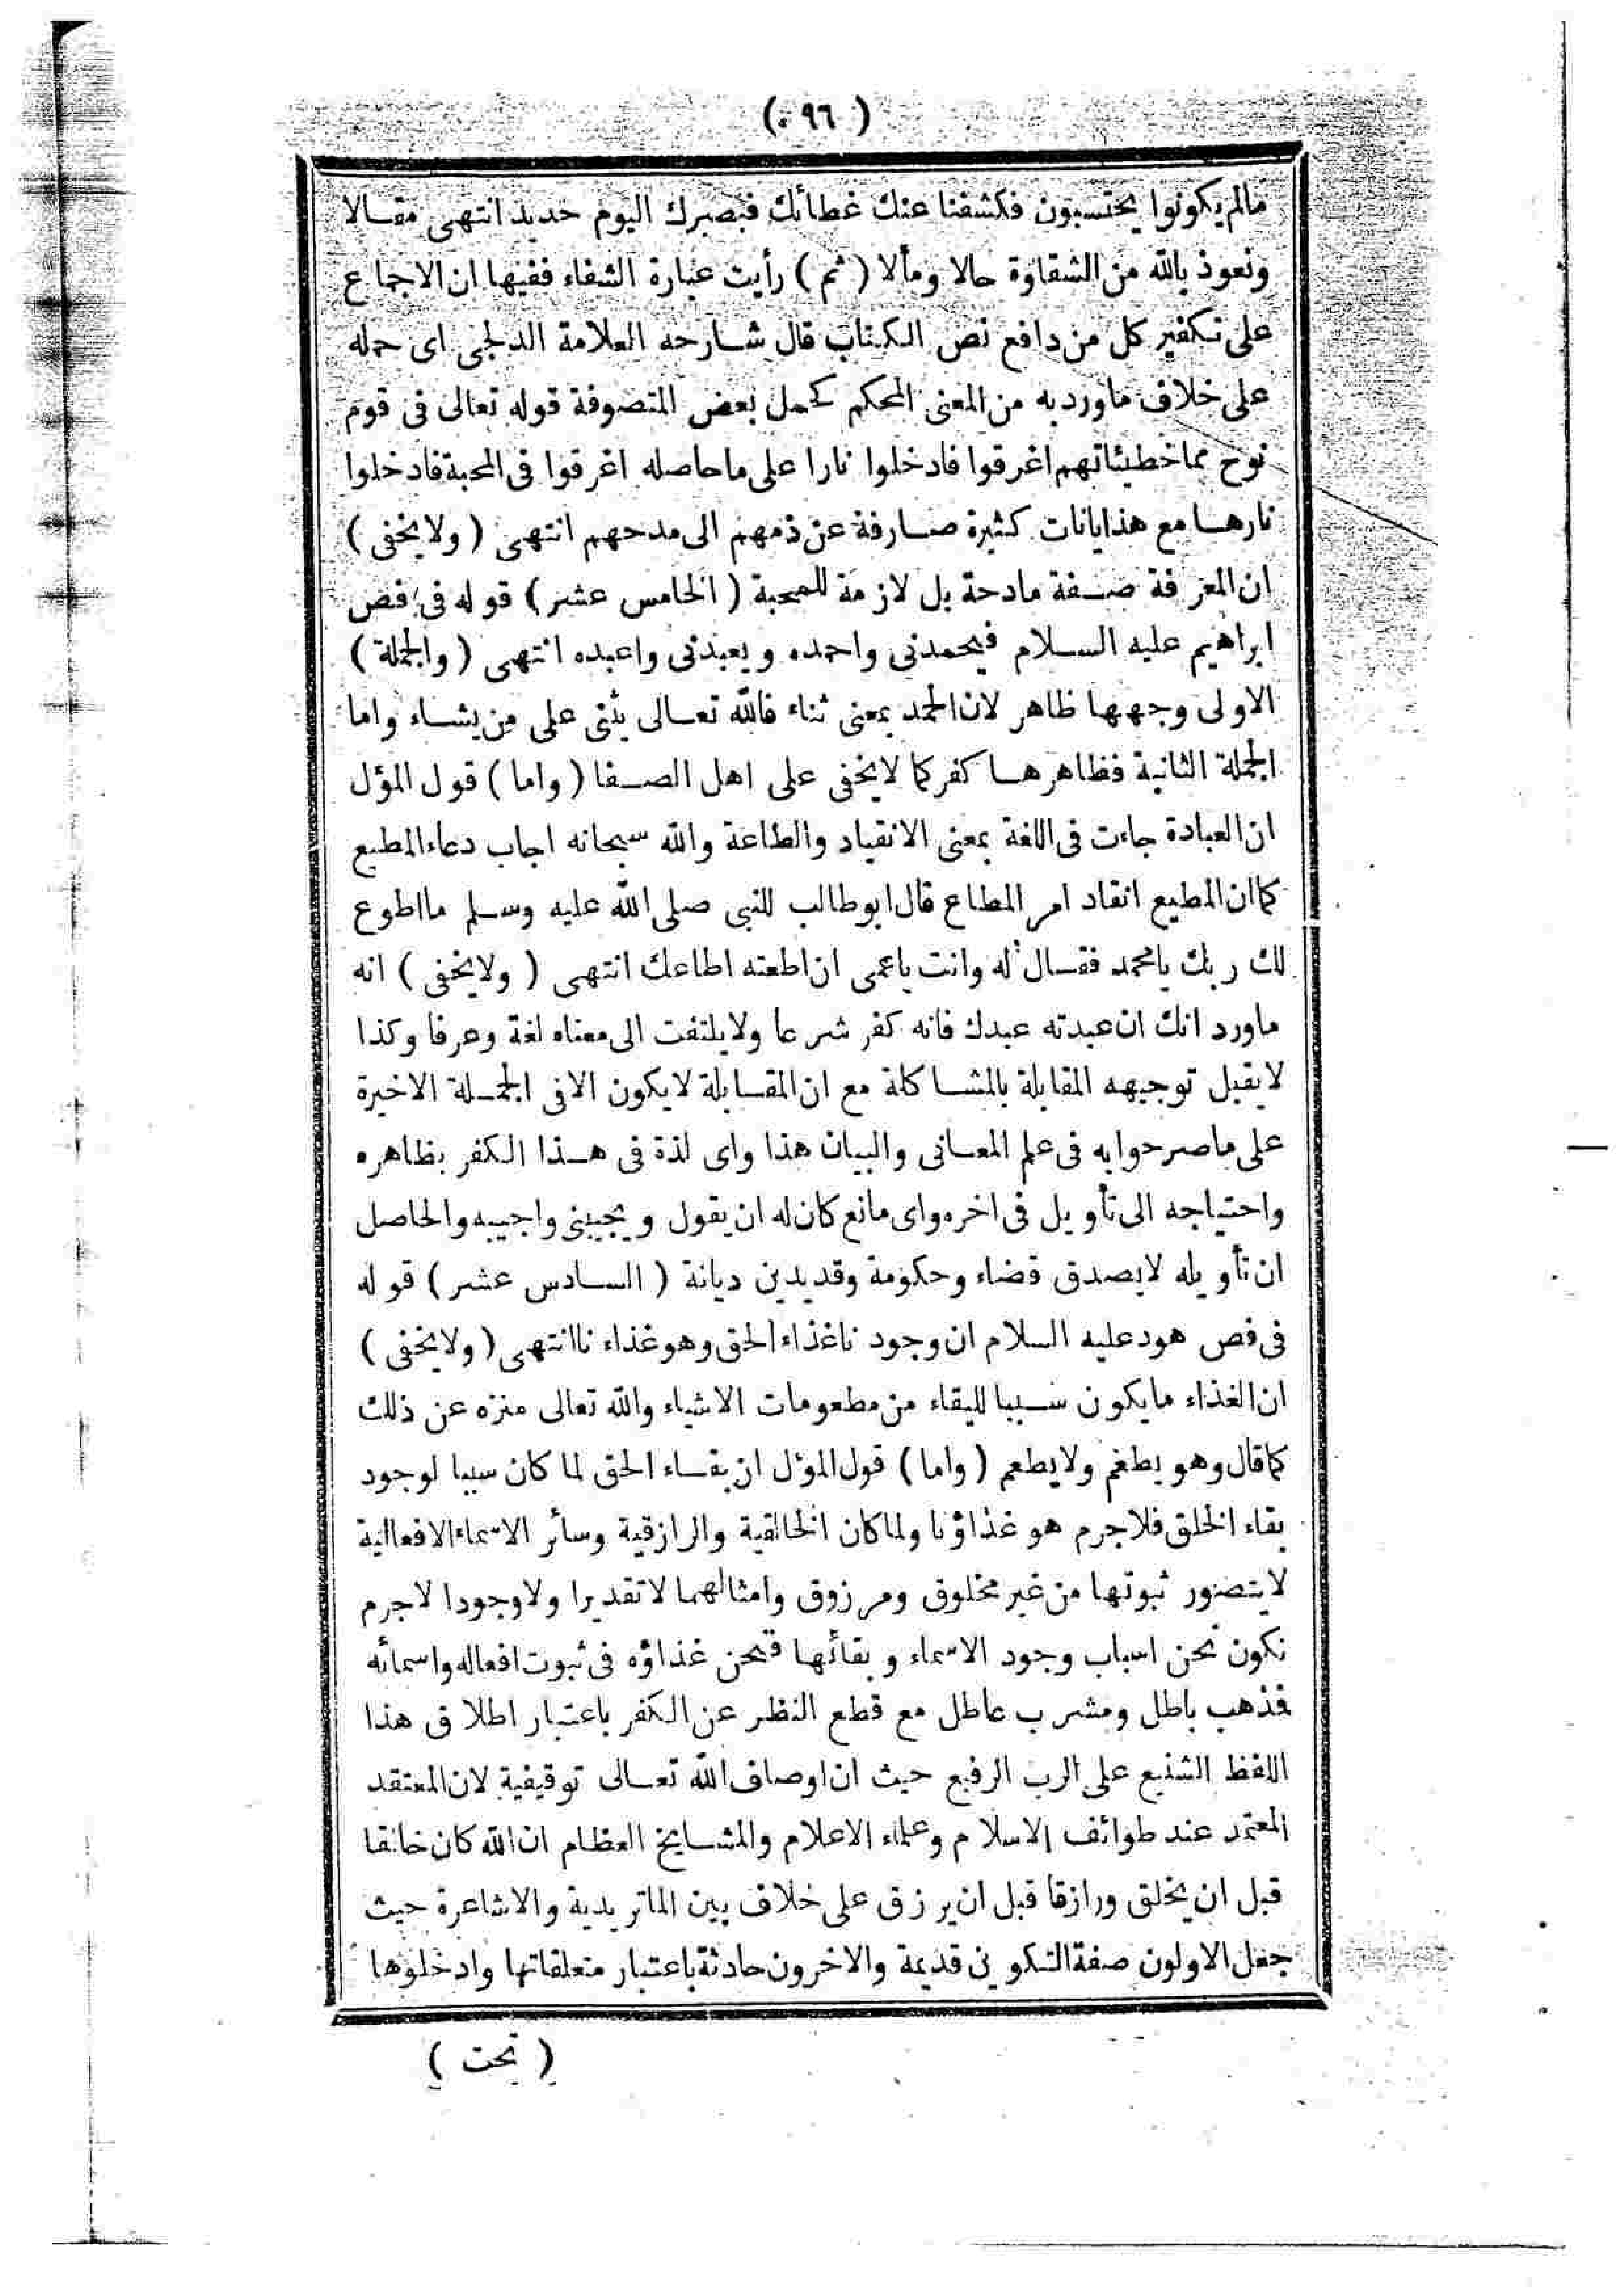 ( ٩٦ )
مالم يكونوا يحتسبون فكشفنا عنك غطائك فبصرك اليوم حديد انتهى مقالا
ونعوذ بالله من الشقاوة حالا ومألا ( ثم ) رأيت عبارة الشفاء ففيها ان الاجماع
على تكفير كل من دافع نص الكتاب قال شارحه العلامة الدلجى اى حمله
على خلاف ماورد به من المعنى المحكم كحمل بعض المتصوفة قوله تعالى فى قوم
نوح مما خطيئاتهم اغرقوا فادخلوا نارا على ماحاصله اغرقوا فى المحبة فادخلوا
نارها مع هذايانات كثيرة صارفة عن ذمهم الى مدحهم انتهى ( ولا يخفى )
ان المعرفة صفة مادحة بل لازمة للمحبة ( الخامس عشر ) قوله فى فص
ابراهيم عليه السلام فيحمدنى واحمده ويعبدنى واعبده انتهى ( والجملة )
الاولى وجهها ظاهر لان الحمد بمعنى ثناء فالله تعالى يثنى على من يشاء واما
الجملة الثانية فظاهرها كفر كما لا يخفى على اهل الصفا ( واما ) قول المؤل
ان العبادة جاءت فى اللغة بمعنى الانقياد والطاعة والله سبحانه اجاب دعاء المطيع
كما ان المطيع انقاد امر المطاع قال ابو طالب للنبى صلى الله عليه وسلم ما اطوع
لك ربك يا محمد فقال له وانت ياعمى ان اطعته اطاعك انتهى ( ولا يخفى ) انه
ماورد انك ان عبدته عبدك فانه كفر شرعا ولا يلتفت الى معناه لغة وعرفا وكذا
لا يقبل توجيهه المقابلة بالمشاكلة مع ان المقابلة لا يكون الا فى الجملة الاخيرة
على ماصرحوا به فى علم المعانى والبيان هذا واى لذة فى هذا الكفر بظاهره
واحتياجه الى تأويل فى اخره واى مانع كان له ان يقول ويجيبنى واجيبه والحاصل
ان تأويله لا يصدق قضاء وحكومة وقد يدين ديانة ( السادس عشر ) قوله
فى فص هود عليه السلام ان وجودنا غذاء الحق وهو غذاءنا انتهى ( ولا يخفى )
ان الغذاء ما يكون سببا للبقاء من مطعومات الاشياء والله تعالى منزه عن ذلك
كما قال وهو يطعم ولا يطعم ( واما ) قول المؤل ان بقاء الحق لما كان سببا لوجود
بقاء الخلق فلاجرم هو غذاؤنا ولما كان الخالقية والرازقية وسائر الاسماء الافعالية
لا يتصور ثبوتها من غير مخلوق ومرزوق وامثالهما لا تقديرا ولا وجودا لاجرم
نكون نحن اسباب وجود الاسماء وبقائها فنحن غذاؤه فى ثبوت افعاله واسمائه
فذهب باطل ومشرب عاطل مع قطع النظر عن الكفر باعتبار اطلاق هذا
اللفظ الشنيع على الرب الرفيع حيث ان اوصاف الله تعالى توقيفية لان المعتقد
المعتمد عند طوائف الاسلام وعلماء الاعلام والمشايخ العظام ان الله كان خالقا
قبل ان يخلق ورازقا قبل ان يرزق على خلاف بين الماتريدية والاشاعرة حيث
جعل الاولون صفة التكوين قديمة والاخرون حادثة باعتبار متعلقاتها وادخلوها
( تحت )